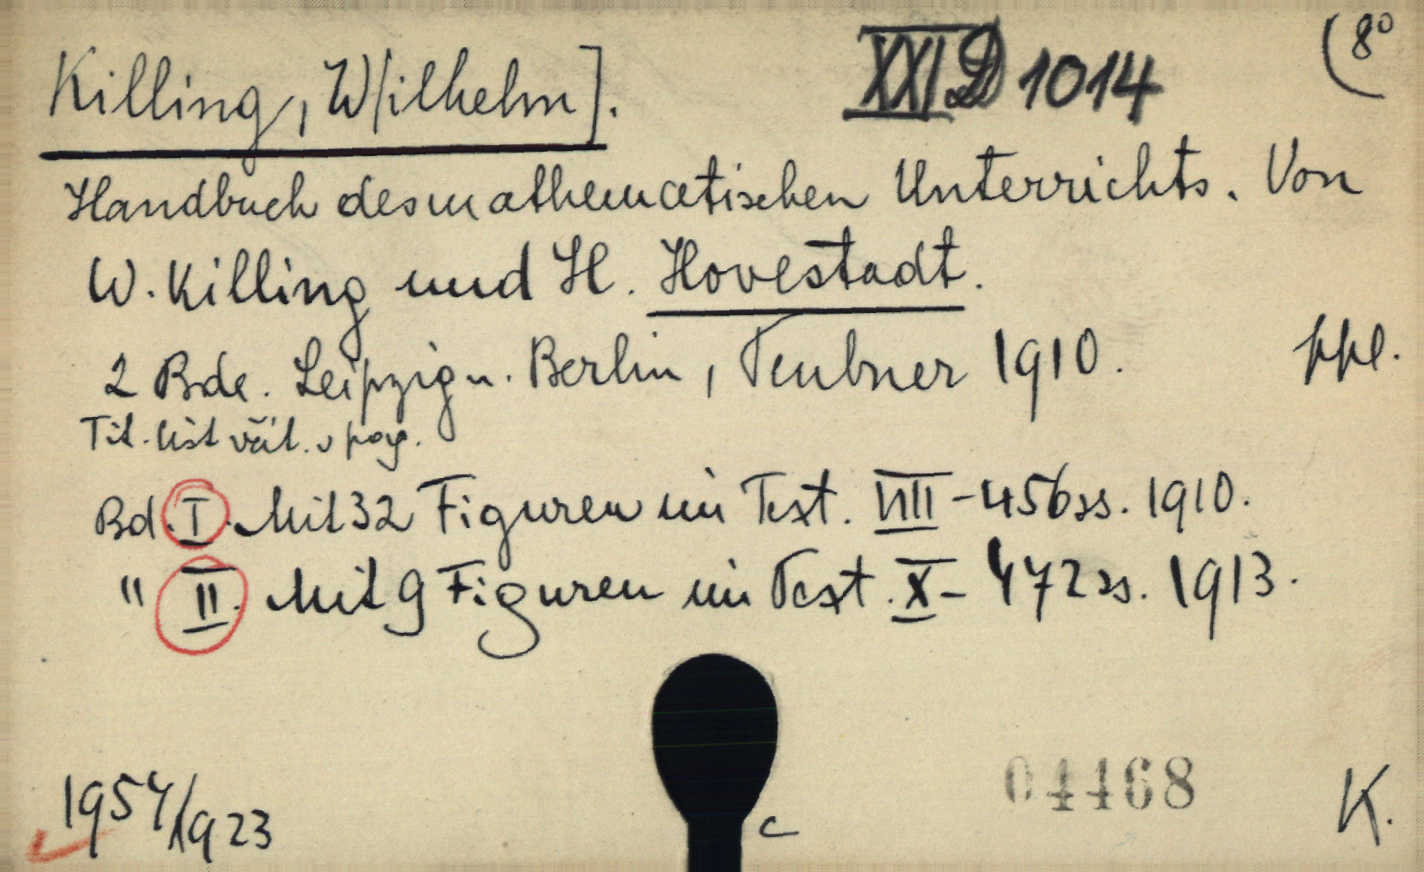 Killing, W[ilhelm]. XXI D 1014 (8°
Handbuch des mathematischen Unterrichts. Von
W. Killing und H. Hovestadt.
2 Bde. Leipzig u. Berlin, Teubner 1910. ppl.
Tit. list vět. v pag.
Bd. I. Mit 32 Figuren im Text. VIII - 456 ss. 1910.
" II. Mit 9 Figuren im Text. X - 472 ss. 1913.
04468
1954/1923 c K.